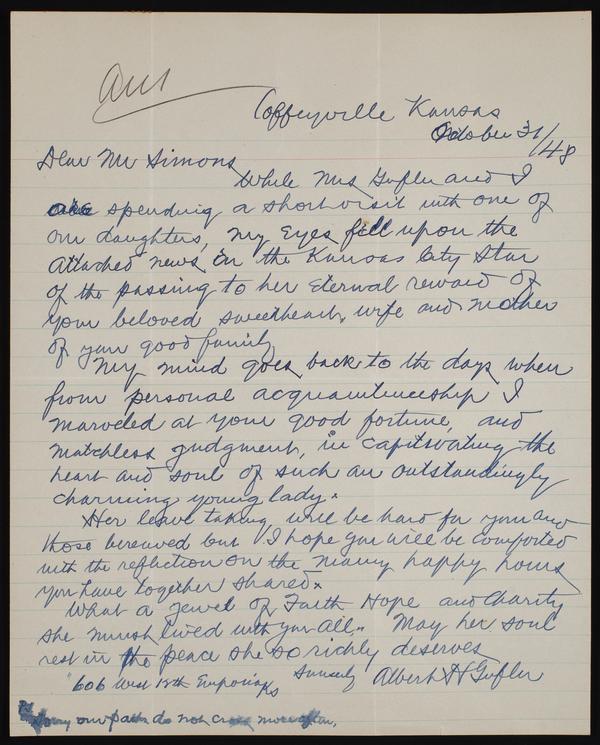 Ans
Coffeyville Kansas
October 31/48
Dear Mr Simons
While Mrs Gufler and I
are spending a short visit with one of
our daughters, my eyes fell upon the
attached news in the Kansas City Star
of the passing to her eternal reward of
your beloved sweetheart, wife and mother
of your good family
My mind goes back to the days when
from personal acquaintenceship I
marveled at your good fortune, and
matchless judgment, in captivating the
heart and soul of such an outstandingly
charming young lady.
Her leave taking will be hard for you and
those bereaved but I hope you will be comforted
with the reflection on the many happy hours
you have together shared.
What a jewel of Faith Hope and Charity
she must lived with you all,. May her soul
rest in the peace she so richly deserves
Sincerely Albert H Gufler
"606 West 12th Emporia Ks
PS
Sorry our paths do not cross more often.